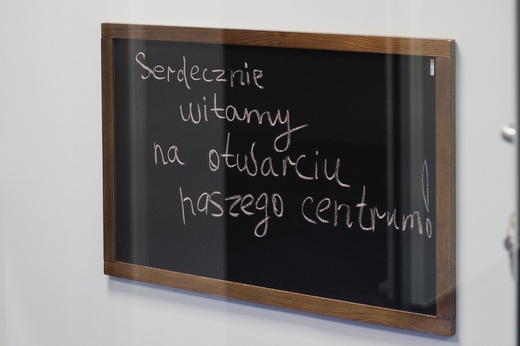 Serdecznie
witamy
na otwarciu
naszego centrum!